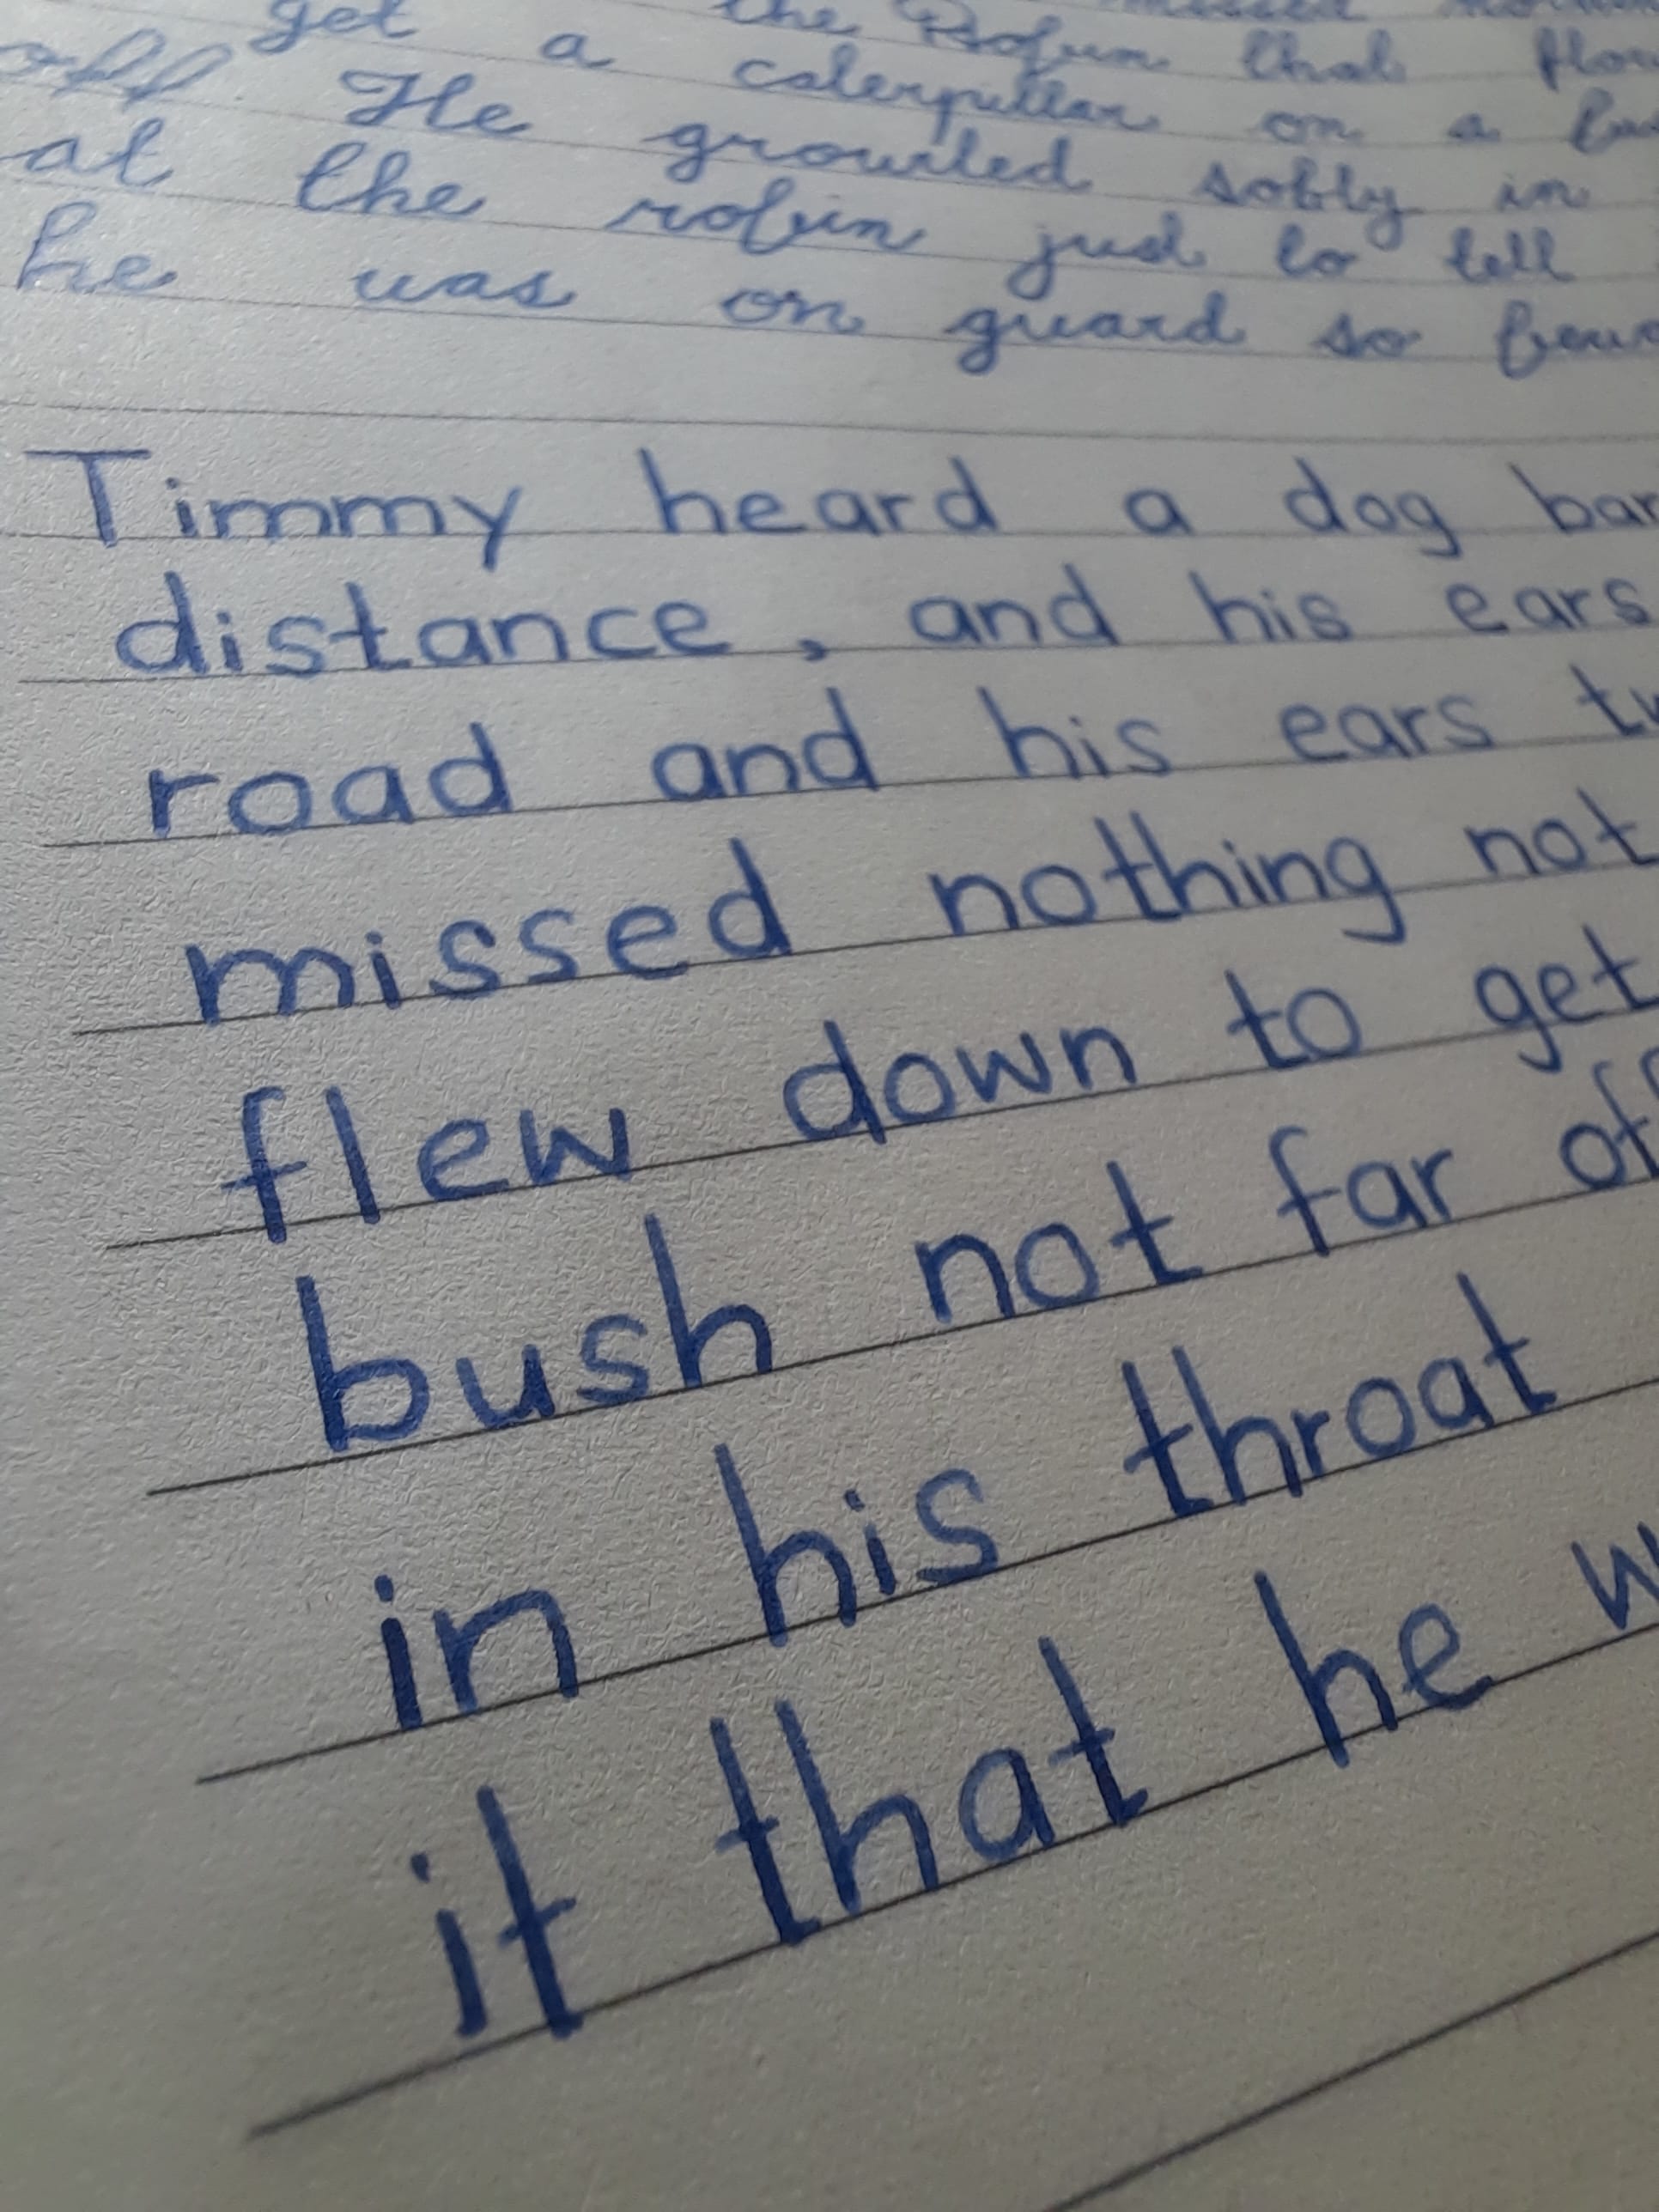 get a the Robin that
off He caterpillar on a
at the growled softly in
he robin just to tell
was on guard so
Timmy heard a dog
distance, and his ears
road and his ears
missed nothing not
flew down to get
bush not far
in his throat
it that he